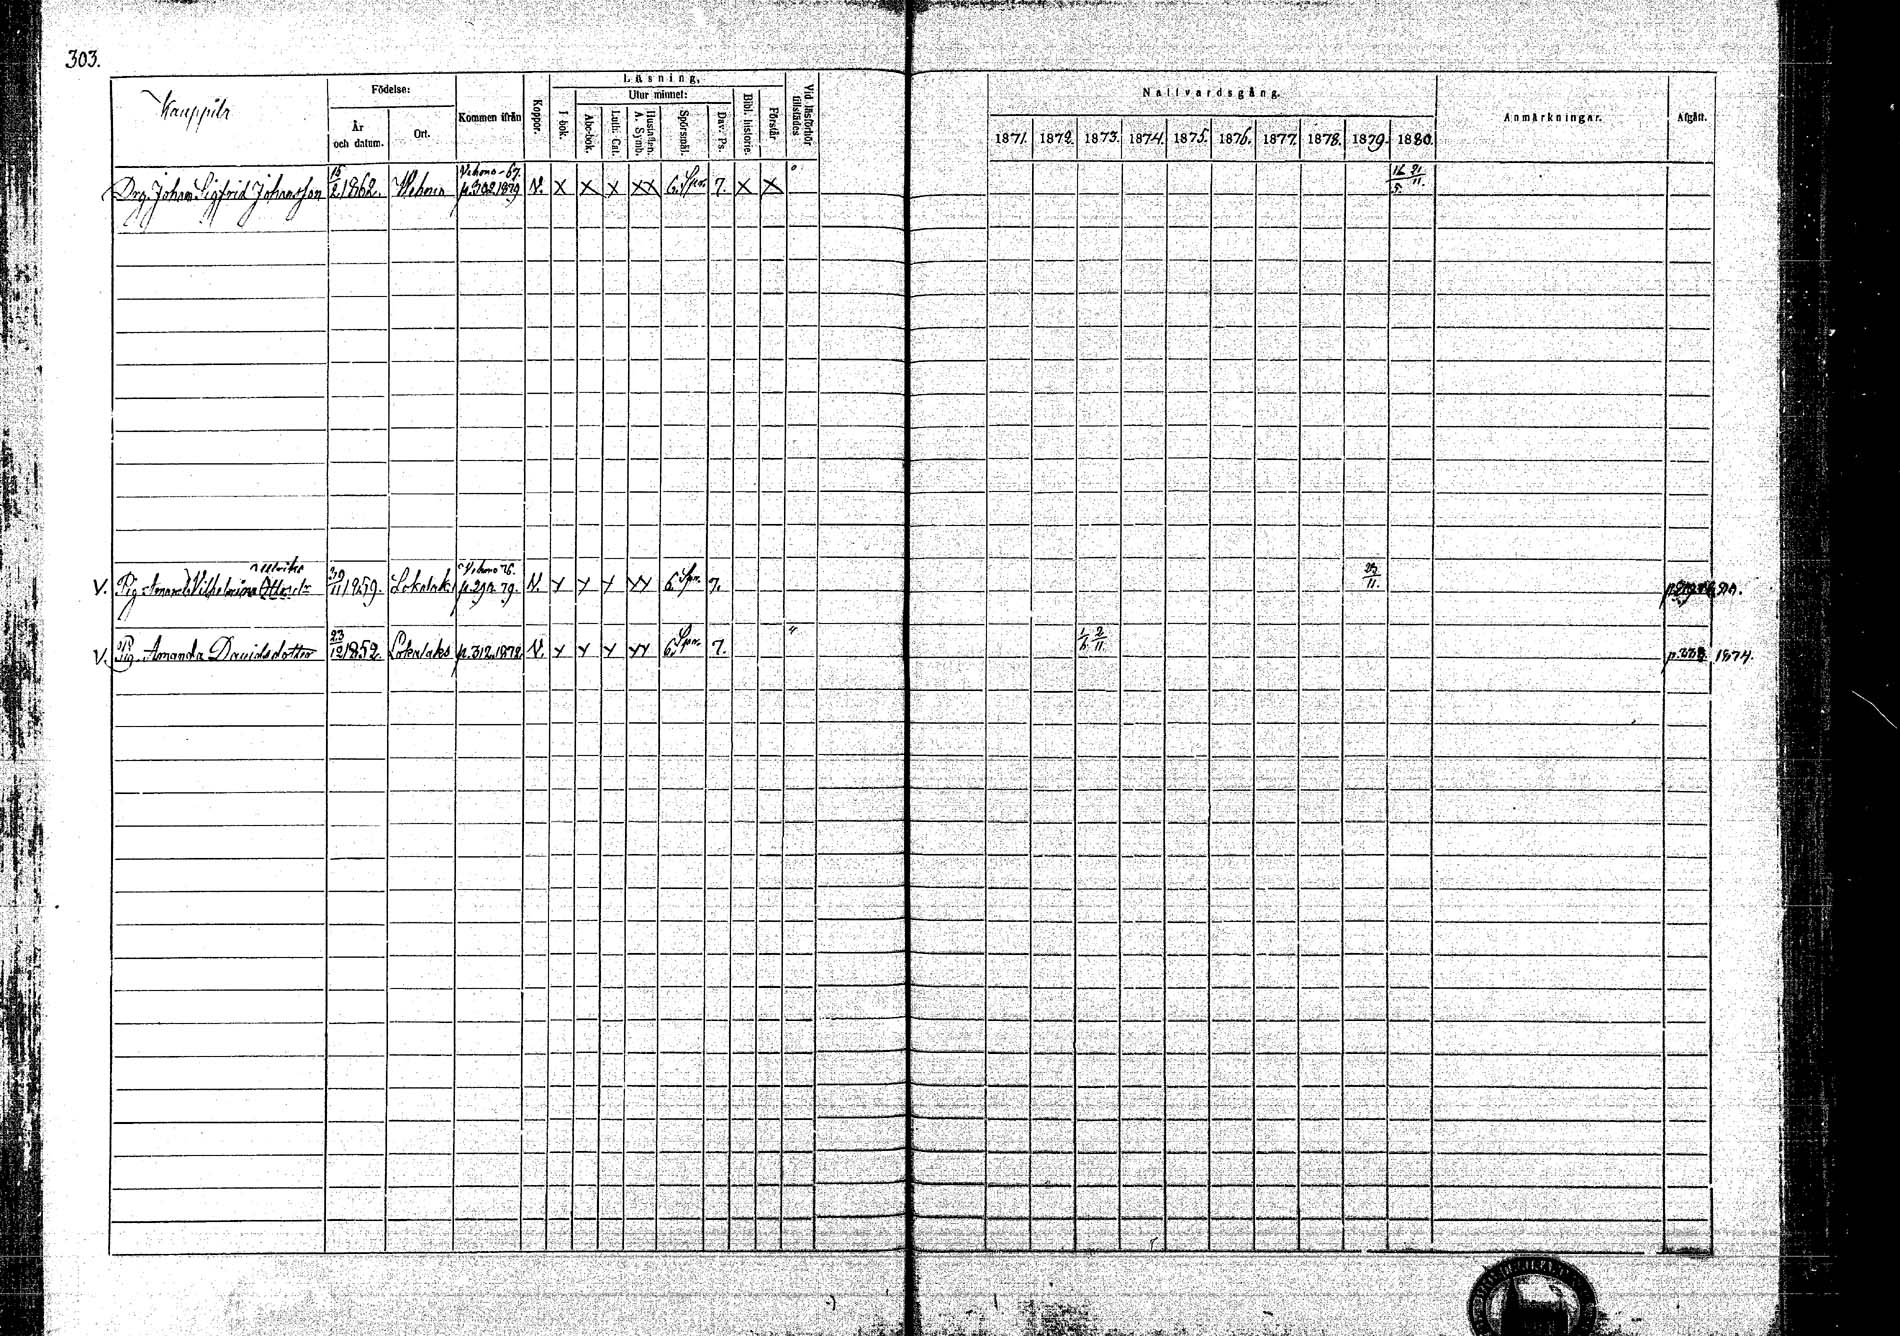 303.
Kauppila
Födelse:
År och datum.
Ort.
Kommen ifrån
Koppor.
Läsning,
I bok.
Utur minnet:
Abc-bok.
Luth. Cat.
Hustaflan. A. Symb.
Spörsmål.
Dav. Ps.
Bibl. historie.
Förstår
Vid läsförhör tillstädes
Nattvardsgång.
1871. 1872. 1873. 1874. 1875. 1876. 1877. 1878. 1879. 1880.
Anmärkningar.
Afgått.
Drg. Johan Sigfrid Johansson 15/2 1862. Wehmo Vehmo-67. p.302.1879 N. X X X XX 6. Spr. 7. X X 0 16/5. 21/11.
V. Pig. Amanda Vilhelmina Ulrika 29/11 1859. Lokalaks Vehmo 76. p.292. 79. N. X X X XX 6. Spr. 7. 23/11.
V. Pig. Amanda Davidsdotter 23/12 1852. Lokalaks p.312.1872. N. X X X XX 6. Spr. 7. 4 1/6 2/11. p.333. 1874.